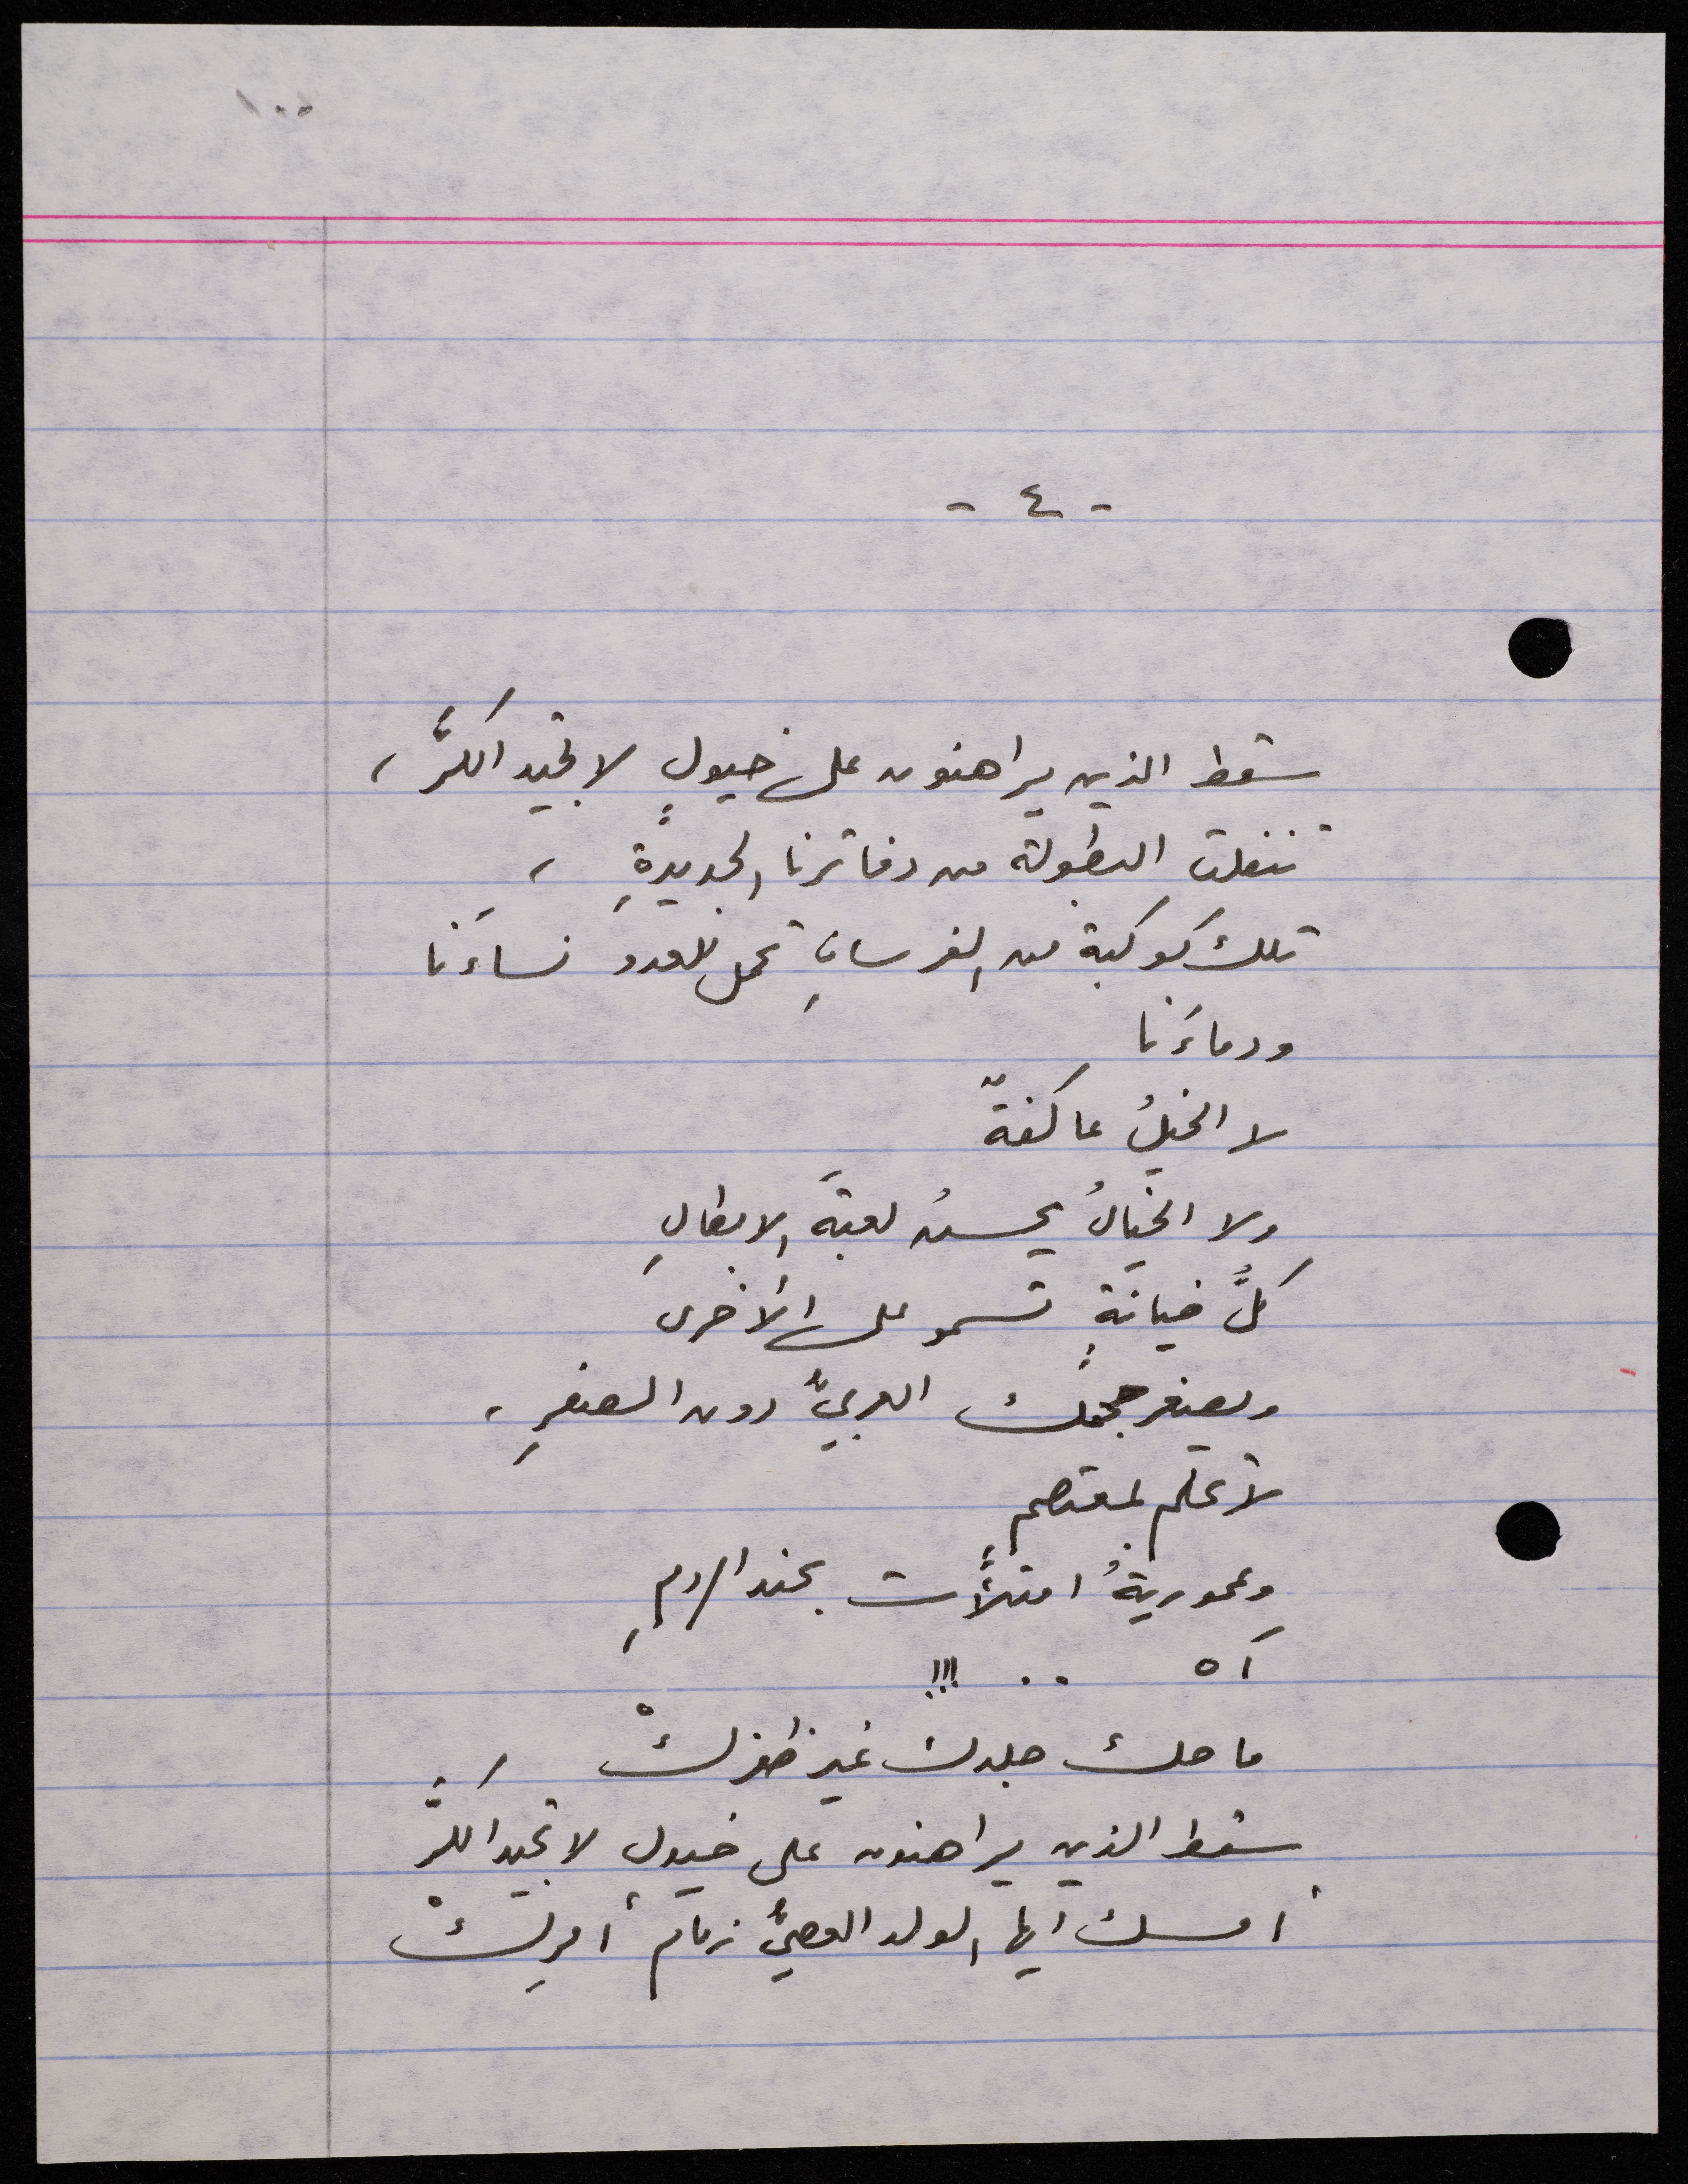 ١٠٠
- ٤ -
سقط الذين يراهنون على خيولٍ لا تجيد الكرَّ ،
تنفلت البطولة من دفاترنا الجديدةِ ،
تلك كوكبة من الفرسانِ تحمل للعدو نساءَنا
ودماءَنا
لا الخيلُ عاكفةٌ
ولا الخيّالُ يحسنُ لعبةَ الابطالِ
كلُّ خيانةٍ تسمو على الأخرى
ويصغر حجمك العربيُّ دون الصفرِ ،
لا تحلم بمعتصمٍ
وعموريةُ امتلأت بجند الرومِ
آه .. !!!
ما حك جلدك غير ظفركْ
سقط الذين يراهنون على خيولٍ لا تجيد الكرَّ
أمسك ايها الولد العصيُّ زمام أمرِكْ